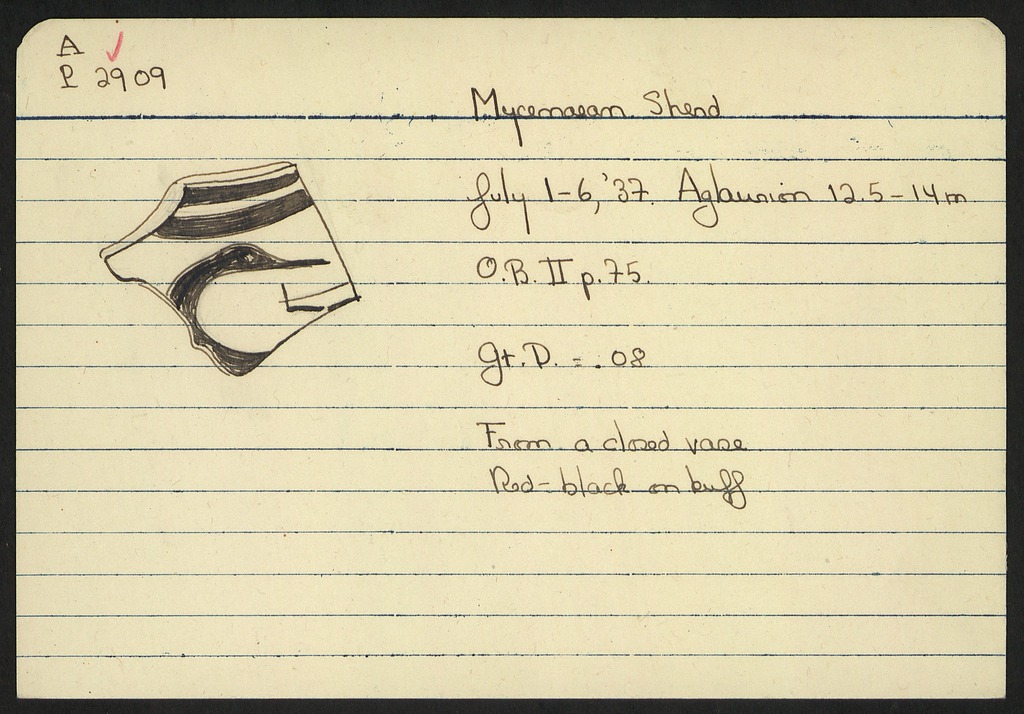 A
P 2909
Mycenaean Sherd
July 1-6, '37. Aglaurion 12.5-14m
O.B. II p. 75.
Gt. D. = .08
From a closed vase
Red-black on buff